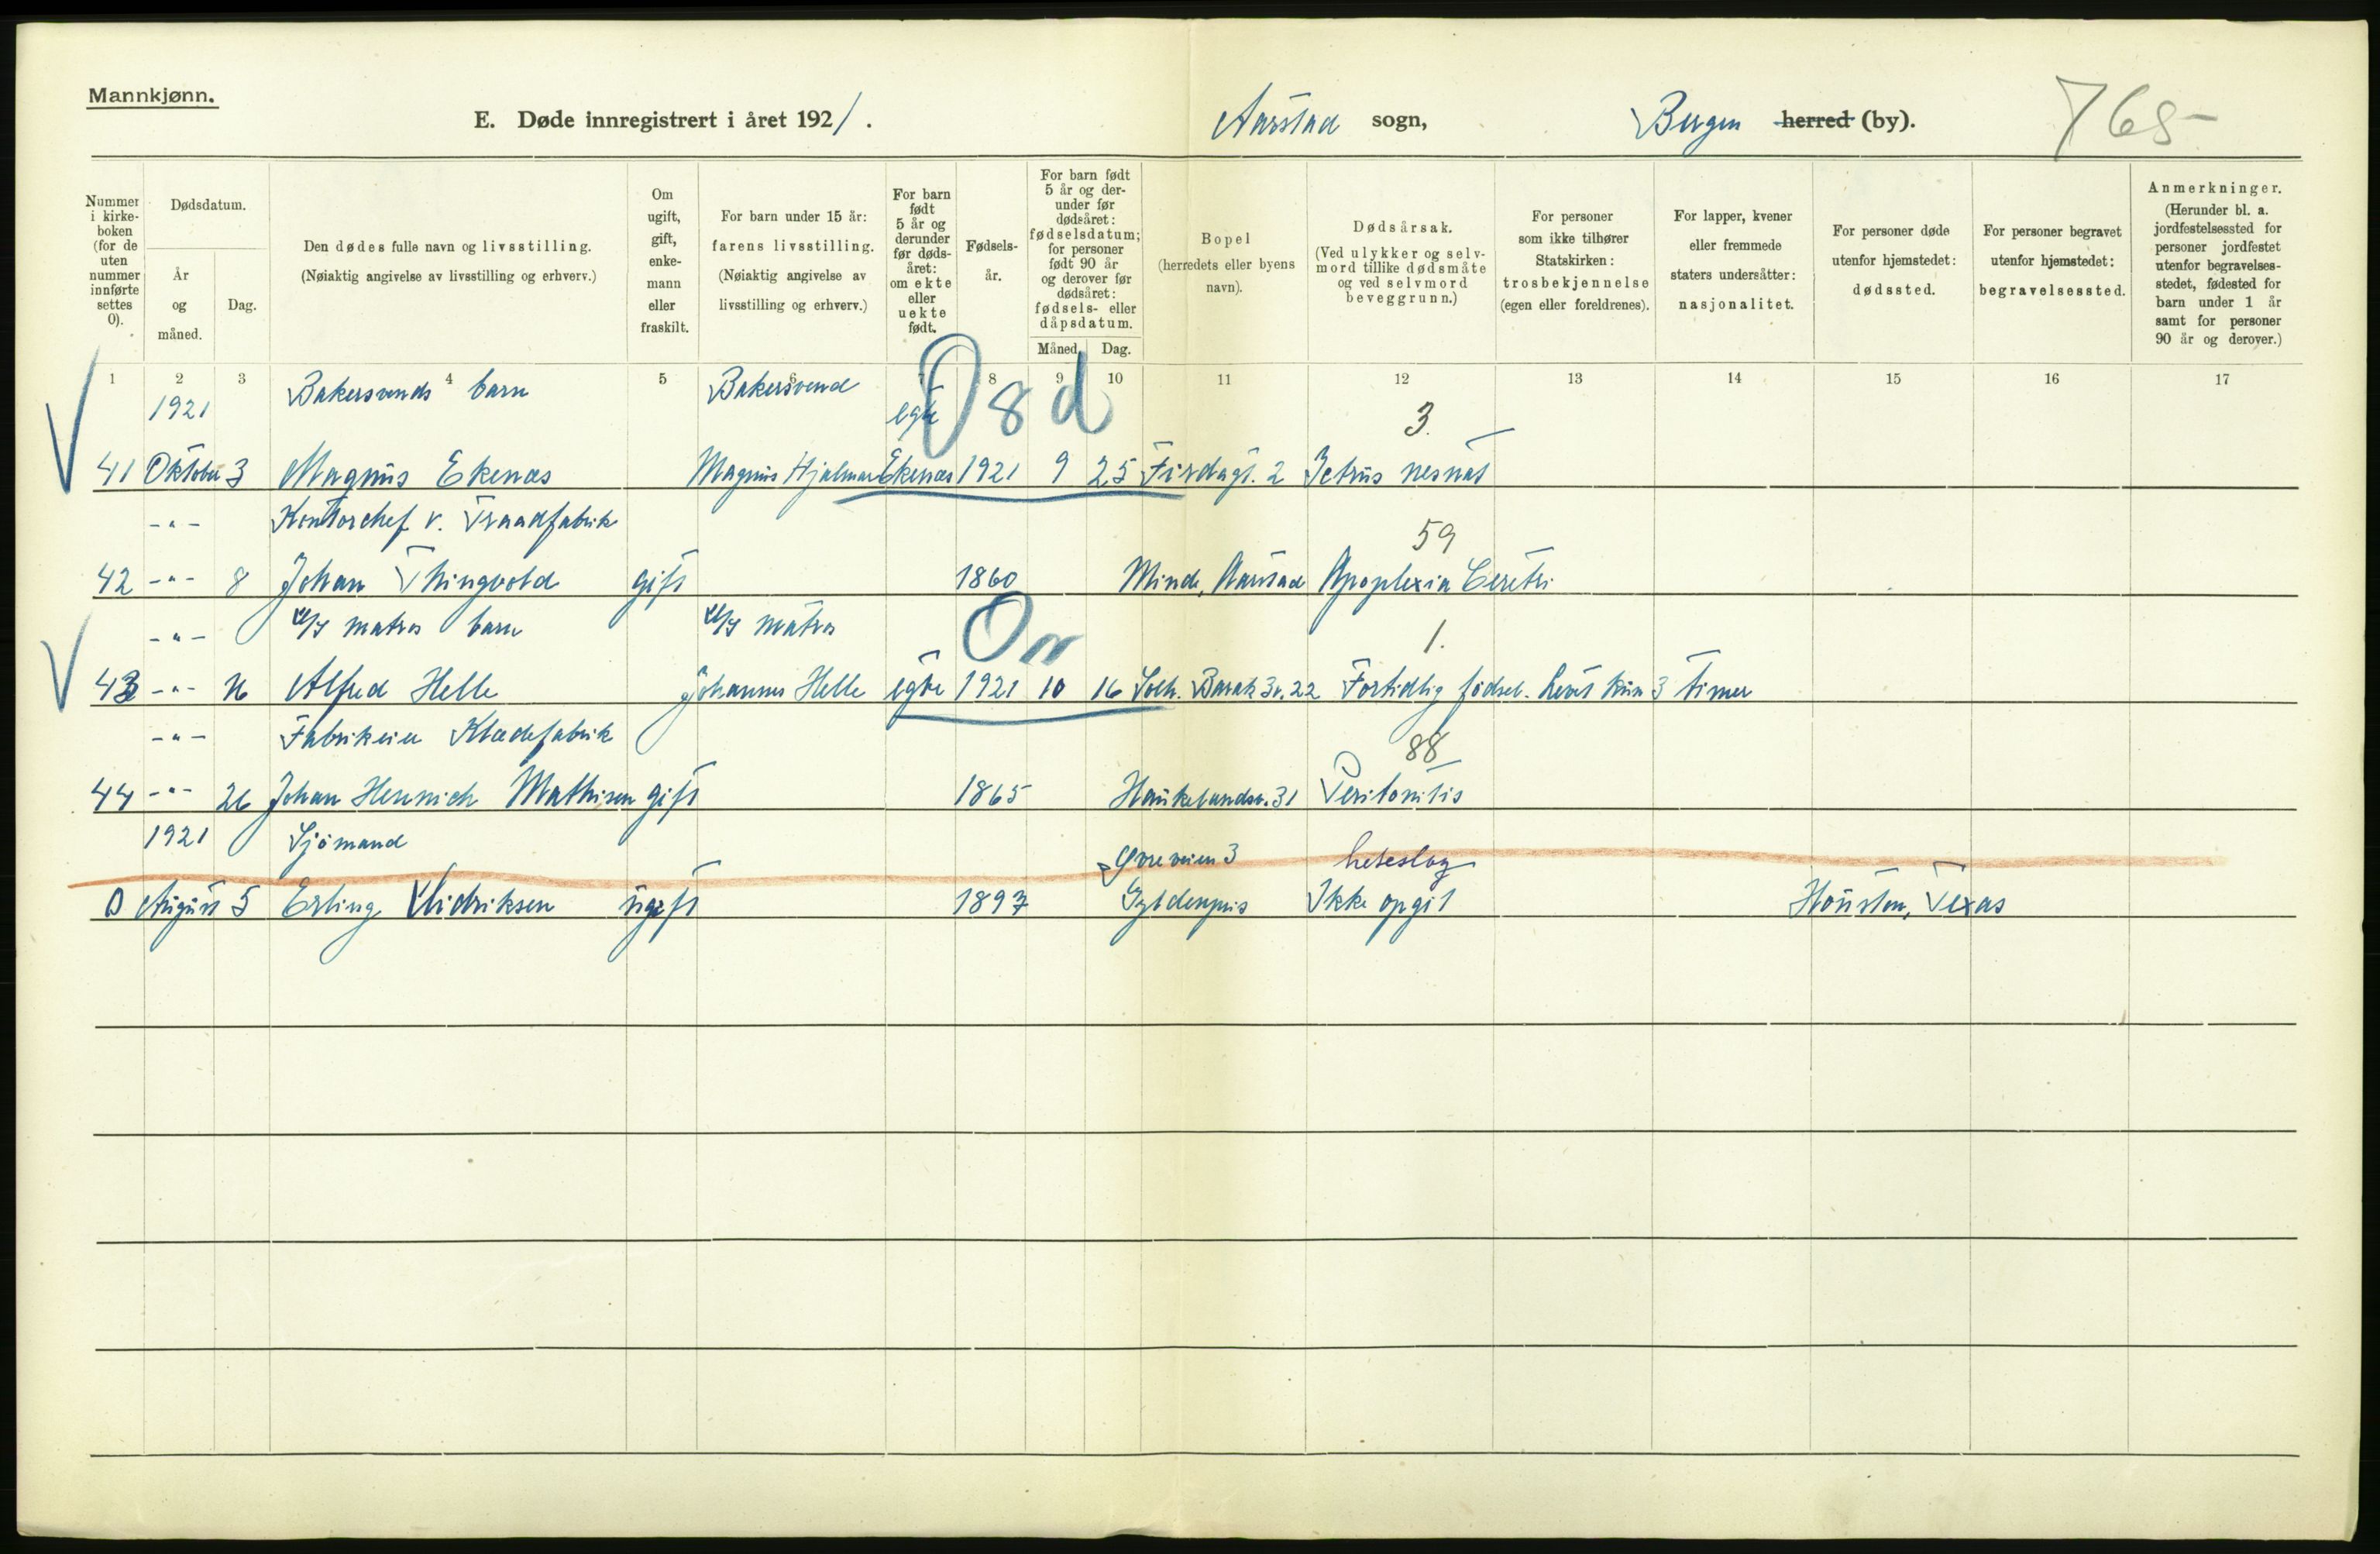 Mannkjønn.
E. Døde innregistrert i året 1921.
Aarstad sogn, Bergen herred (by). 765
Nummer i kirkeboken (for de uten nummer innførte settes 0).
Dødsdatum.
År og måned.
Dag.
Den dødes fulle navn og livsstilling.
(Nøiaktig angivelse av livsstilling og erhverv.)
Om ugift, gift, enkemann eller fraskilt.
For barn under 15 år: farens livsstilling.
(Nøiaktig angivelse av livsstilling og erhverv.)
For barn født 5 år og derunder før dødsåret: om ekte eller uekte født.
Fødselsår.
For barn født 5 år og derunder før dødsåret: fødselsdatum; for personer født 90 år og derover før dødsåret: fødsels- eller dåpsdatum.
Måned. Dag.
Bopel (herredets eller byens navn).
Dødsårsak.
(Ved ulykker og selvmord tillike dødsmåte og ved selvmord beveggrunn.)
For personer som ikke tilhører Statskirken: trosbekjennelse (egen eller foreldrenes).
For lapper, kvener eller fremmede staters undersåtter: nasjonalitet.
For personer døde utenfor hjemstedet: dødssted.
For personer begravet utenfor hjemstedet: begravelsessted.
Anmerkninger.
(Herunder bl. a. jordfestelsessted for personer jordfestet utenfor begravelsesstedet, fødested for barn under 1 år samt for personer 90 år og derover.)
1 2 3 4 5 6 7 8 9 10 11 12 13 14 15 16 17
1921 Bakersvends barn Bakersvend egte 08d 3.
41 Oktober 3 Magnus Ekenæs Magnus Hjalmar Ekenæs 1921 9 25 Firdagt. 2 Icterus neonat
-"- Kontorchef v. Traadfabrik 59
42 -"- 8 Johan Thingvold gift 1860 Minde, Aarstad Apoplexia Cerebri
-"- matros barn matros 1.
43 -"- 16 Alfred Helle Johannes Helle egte 1921 10 16 Solh. Barak 3v. 22 Fortidlig födsel. Levet kun 3 timer
-"- Fabrikeier Klædefabrik 88
44 -"- 26 Johan Henrich Mathisen gift 1865 Haukelandsv. 31 Peritonitis
1921 Sjömand Øvreveien 3 heteslag
0 August 5 Erling Didriksen ugift 1897 Gyldenpris Ikke opgit Houston, Texas